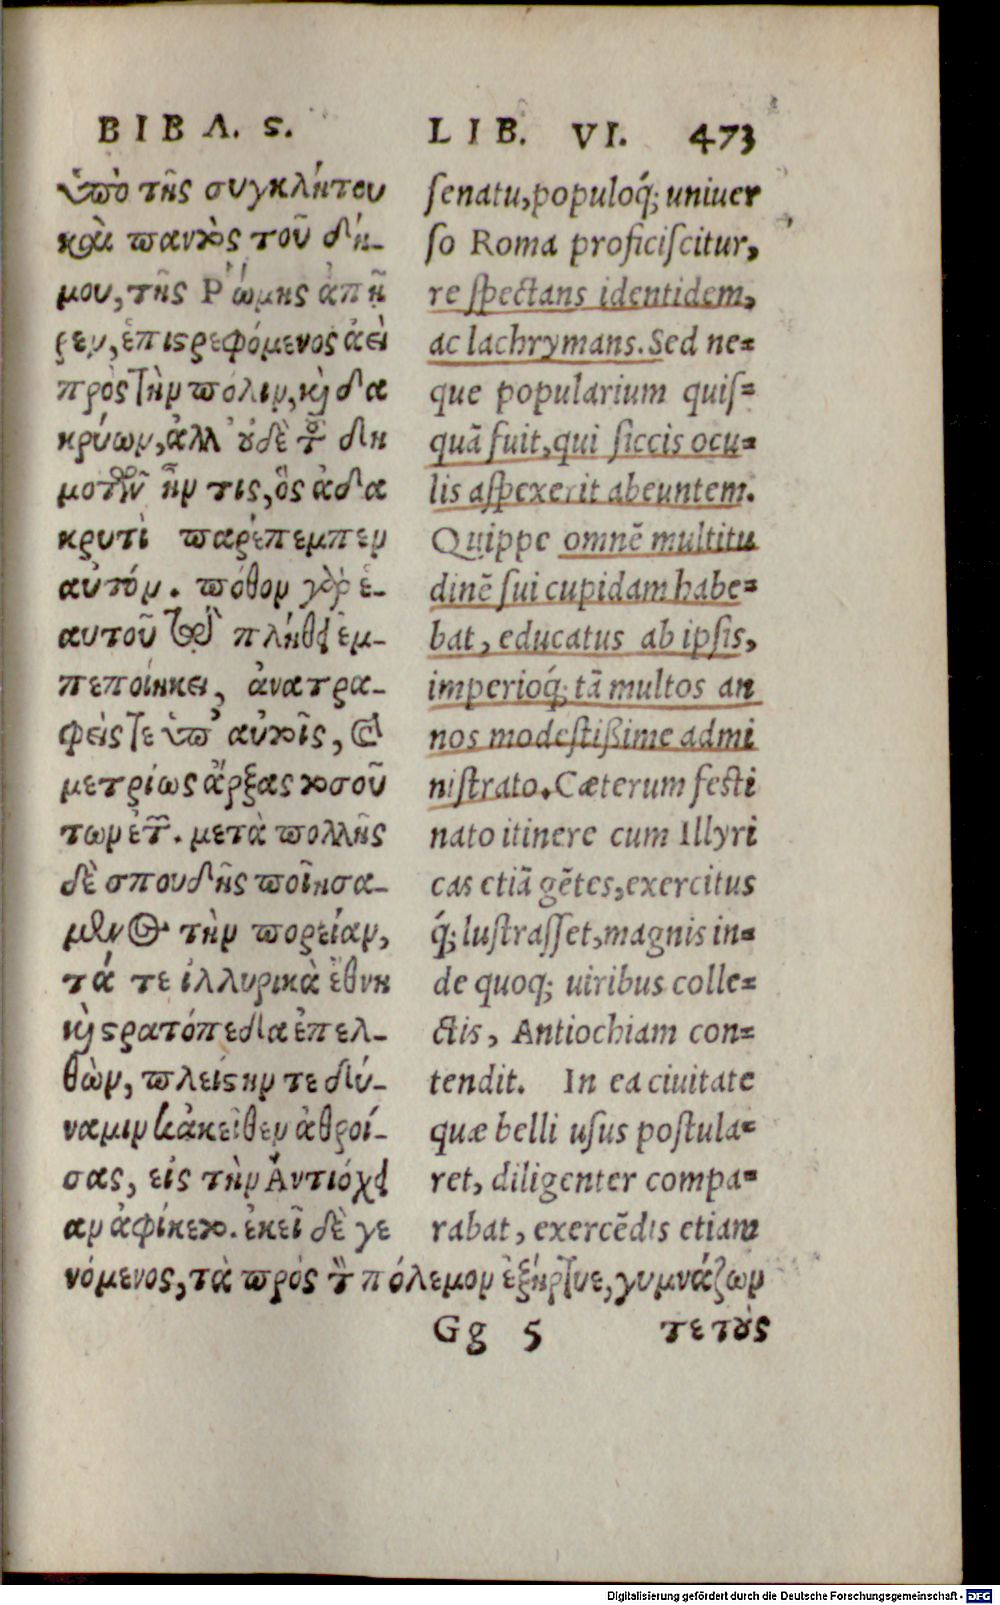 ΒΙΒΛ. ϛ.
ὑπὸ τῆς συγκλήτου
καὶ παντὸς τοῦ δή-
μου, τῆς Ῥώμης ἀπῆ
ρεν, ἐπιστρεφόμενος ἀεὶ
πρὸς τὴν πόλιν, καὶ δα
κρύων, ἀλλ' οὐδὲ τῶν δη
μοτῶν ἦν τις, ὃς ἀδα
κρυτὶ παρέπεμπεν
αὐτόν. πόθον γὰρ ἑ-
αυτοῦ τῷ πλήθει ἐμ-
πεποίηκει, ἀνατρα-
φείς τε ὑπ' αὐτοῖς, καὶ
μετρίως ἄρξας τοσού
των ἐτῶν. μετὰ πολλῆς
δὲ σπουδῆς ποιησά-
μενος τὴν πορείαν,
τά τε ἰλλυρικὰ ἔθνη
καὶ στρατόπεδα ἐπελ-
θὼν, πλείστην τε δύ-
ναμιν κἀκεῖθεν ἀθροί-
σας, εἰς τὴν Ἀντιόχει
αν ἀφίκετο. ἐκεῖ δὲ γε
νόμενος, τὰ πρὸς τὸν πόλεμον ἐξήρτυε, γυμνάζων
LIB. VI. 473
senatu, populoq́; uniuer
so Roma proficiscitur,
respectans identidem,
ac lachrymans. Sed ne=
que popularium quis=
quã fuit, qui siccis ocu=
lis aspexerit abeuntem.
Quippe omnẽ multitu
dinẽ sui cupidam habe=
bat, educatus ab ipsis,
imperioq́; tã multos an
nos modestißime admi
nistrato. Cæterum festi
nato itinere cum Illyri
cas etiã gẽtes, exercitus
q́; lustrasset, magnis in=
de quoq; uiribus colle=
ctis, Antiochiam con=
tendit. In ea ciuitate
quæ belli usus postula=
ret, diligenter compa=
rabat, exercẽdis etiam
Gg 5 τε τοὺς
Digitalisierung gefördert durch die Deutsche Forschungsgemeinschaft - DFG